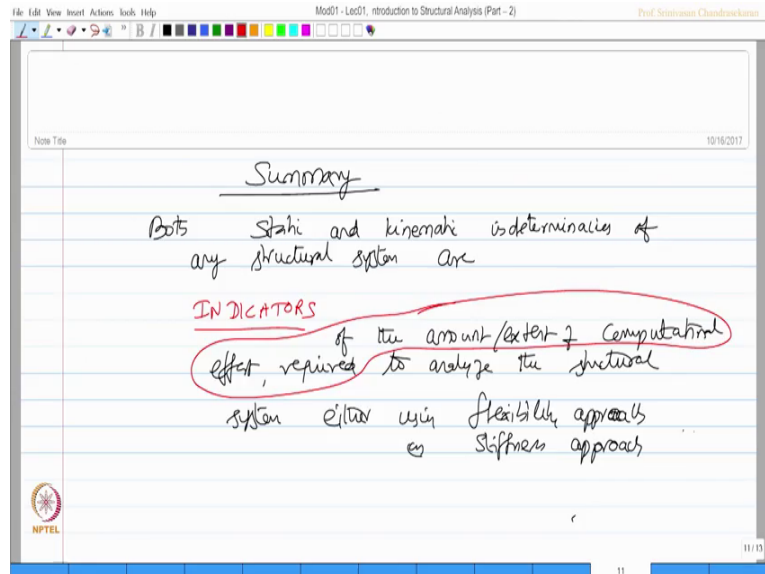 File Edit View Insert Actions Tools Help
Mod01 - Lec01, ntroduction to Structural Analysis (Part – 2)
Prof. Srinivasan Chandrasekaran
B I
Note Title
10/16/2017
Summary
Both Static and kinematic indeterminacies of
any structural system are
INDICATORS
of the amount/extent of computational
effort, required to analyze the structural
system either using flexibility approach
or stiffness approach
NPTEL
11 / 13
11